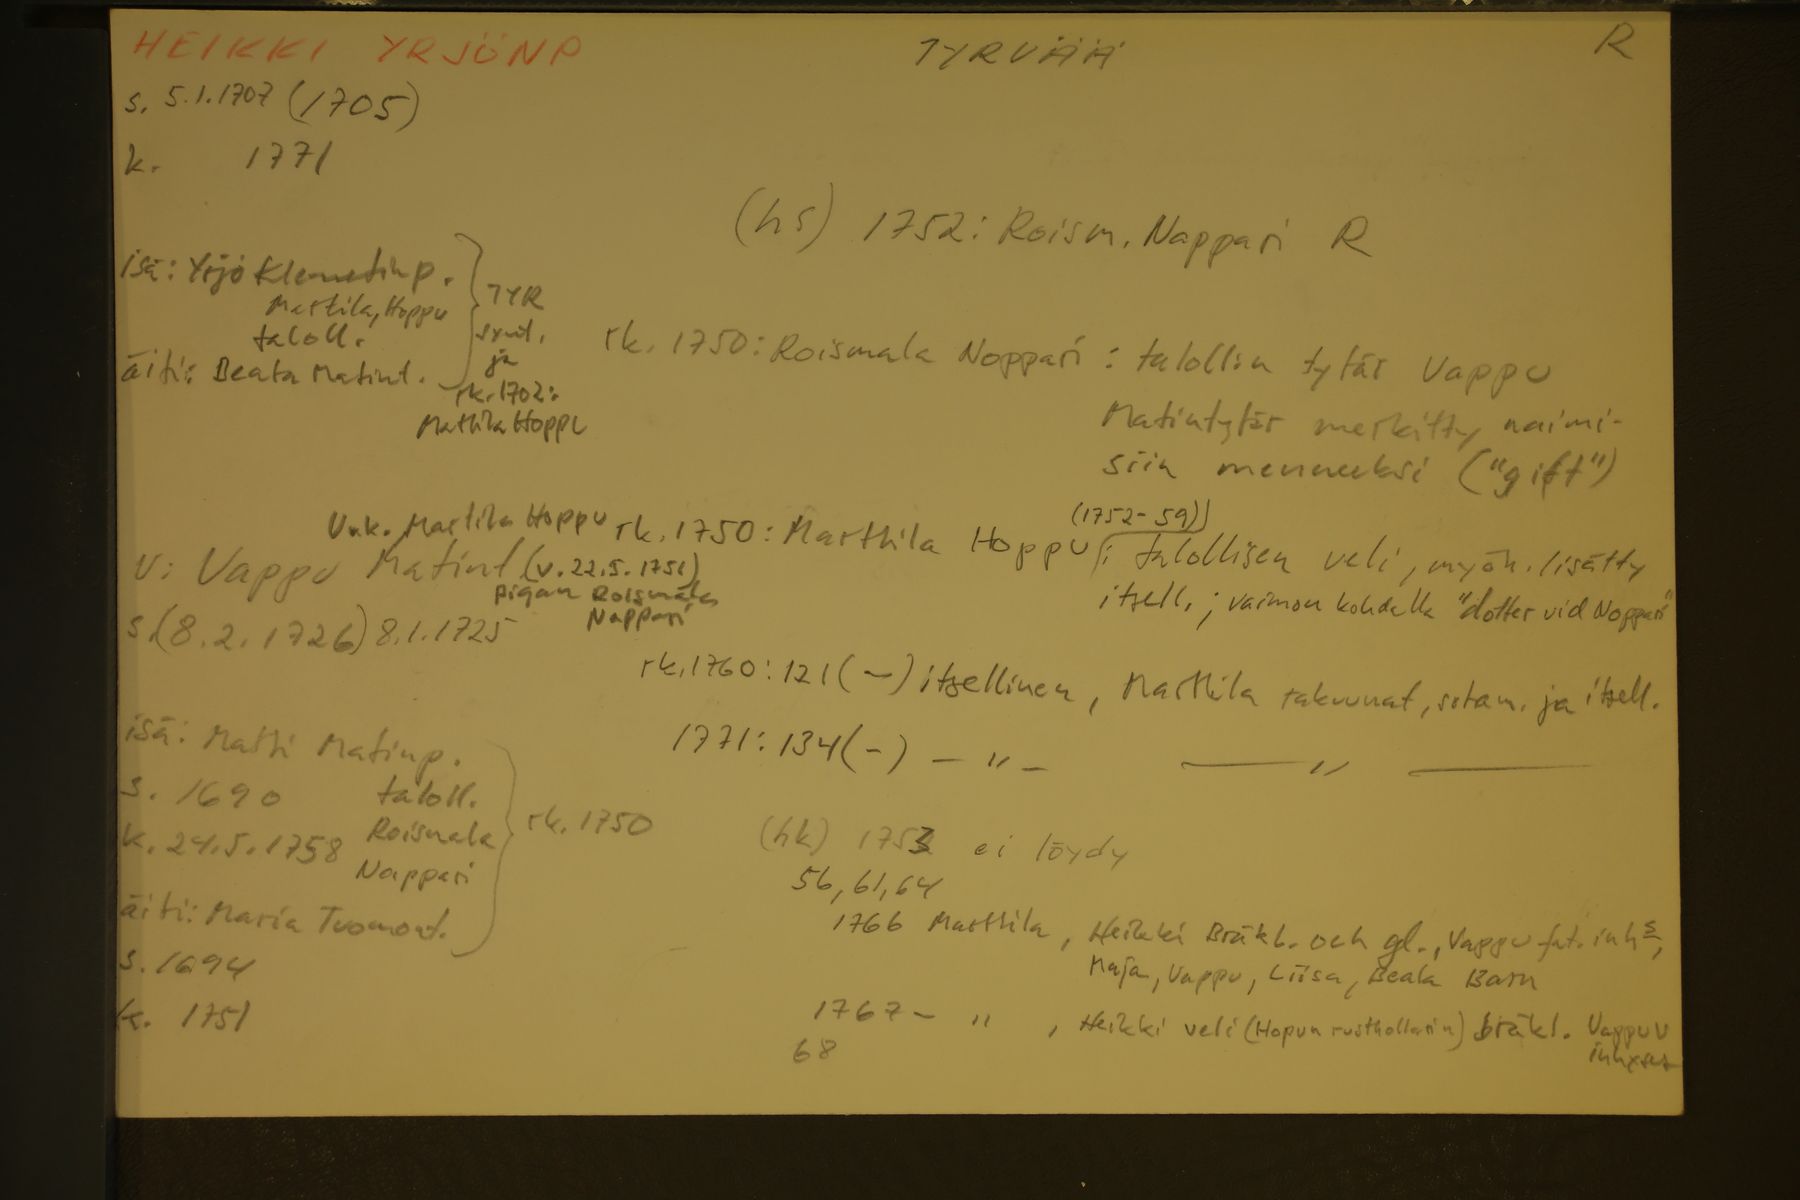 HEIKKI YRJÖNP TYRVÄÄ R
s. 5.1.1707 (1705)
k. 1771
(hs) 1752: Roism. Nappari R
isä: Yrjö Klemetinp.
Marttila, Hoppu
taloll.
äiti: Beata Matint.
TYR
synt.
ja
rk. 1702:
Marttila Hoppu
rk. 1750: Roismala Noppari: talollin tytär Vappu
Matintytär merkitty naimi-
siin menneeksi ("gift")
U.k. Marttila Hoppu
v: Vappu Matint (v. 22.5. 1751)
pigan Roismala
Nappari
s. (8.2. 1726) 8.1.1725
(1752-59)
rk. 1750: Marttila Hoppu: talollisen veli, myöh. lisätty
itsell.; vaimon kohdalla "dotter vid Noppari"
rk. 1760: 121 (-) itsellinen, Marttila rakuunat, sotam. ja itsell.
1771: 134 (-) - " - - " -
isä: Matti Matinp.
s. 1690 taloll.
k. 24.5.1758 Roismala
Nappari
äiti: Maria Tuomont.
s. 1694
k. 1751
rk. 1750
(hk) 1753 ei löydy
56, 61, 64
1766 Marttila, Heikki Bräkl. och gl., Vappu fat. inhs,
Maja, Vappu, Liisa, Beata Barn
1767- " , Heikki veli (Hopun rusthollarin) bräkl. Vappu v
68